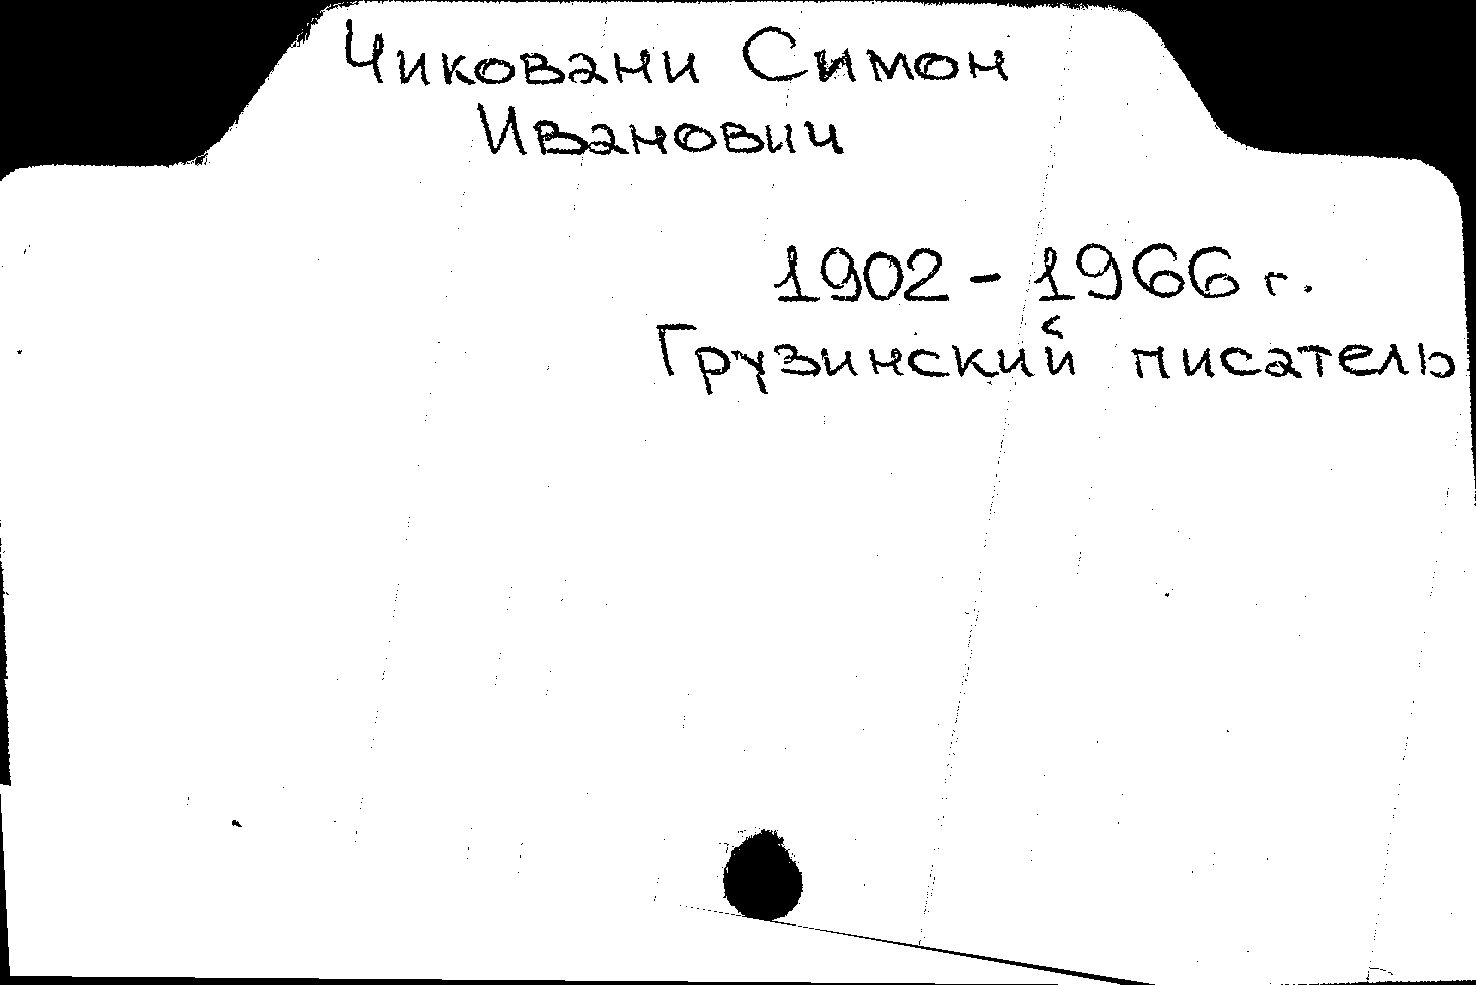 Чиковани Симон
Иванович
1902 - 1966 г.
Грузинский писатель